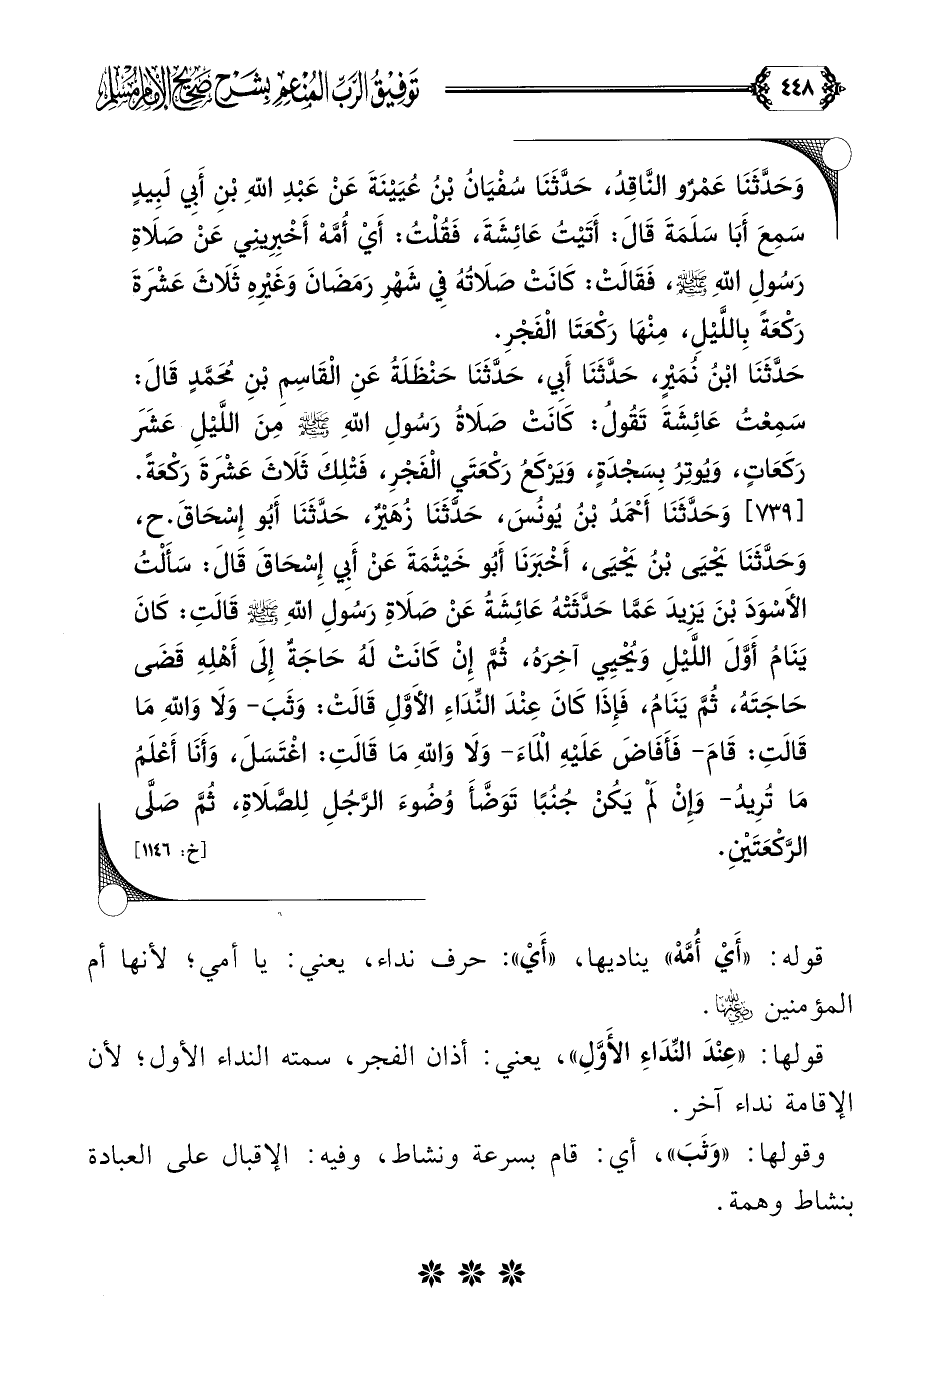 ٤٤٨
توفيق الرب المنعم بشرح صحيح الإمام مسلم
وَحَدَّثَنَا عَمْرٌو النَّاقِدُ، حَدَّثَنَا سُفْيَانُ بْنُ عُيَيْنَةَ عَنْ عَبْدِ اللهِ بْنِ أَبِي لَبِيدٍ
سَمِعَ أَبَا سَلَمَةَ قَالَ: أَتَيْتُ عَائِشَةَ، فَقُلْتُ: أَيْ أُمَّهْ أَخْبِرِينِي عَنْ صَلَاةِ
رَسُولِ اللهِ ﷺ، فَقَالَتْ: كَانَتْ صَلَاتُهُ فِي شَهْرِ رَمَضَانَ وَغَيْرِهِ ثَلَاثَ عَشْرَةَ
رَكْعَةً بِاللَّيْلِ، مِنْهَا رَكْعَتَا الْفَجْرِ.
حَدَّثَنَا ابْنُ نُمَيْرٍ، حَدَّثَنَا أَبِي، حَدَّثَنَا حَنْظَلَةُ عَنِ الْقَاسِمِ بْنِ مُحَمَّدٍ قَالَ:
سَمِعْتُ عَائِشَةَ تَقُولُ: كَانَتْ صَلَاةُ رَسُولِ اللهِ ﷺ مِنَ اللَّيْلِ عَشَرَ
رَكَعَاتٍ، وَيُوتِرُ بِسَجْدَةٍ، وَيَرْكَعُ رَكْعَتَيِ الْفَجْرِ، فَتْلِكَ ثَلَاثَ عَشْرَةَ رَكْعَةً.
[٧٣٩] وَحَدَّثَنَا أَحْمَدُ بْنُ يُونُسَ، حَدَّثَنَا زُهَيْرٌ، حَدَّثَنَا أَبُو إِسْحَاقَ.ح،
وَحَدَّثَنَا يَحْيَى بْنُ يَحْيَى، أَخْبَرَنَا أَبُو خَيْثَمَةَ عَنْ أَبِي إِسْحَاقَ قَالَ: سَأَلْتُ
الأَسْوَدَ بْنَ يَزِيدَ عَمَّا حَدَّثَتْهُ عَائِشَةُ عَنْ صَلَاةِ رَسُولِ اللهِ ﷺ قَالَتِ: كَانَ
يَنَامُ أَوَّلَ اللَّيْلِ وَيُحْيِي آخِرَهُ، ثُمَّ إِنْ كَانَتْ لَهُ حَاجَةٌ إِلَى أَهْلِهِ قَضَى
حَاجَتَهُ، ثُمَّ يَنَامُ، فَإِذَا كَانَ عِنْدَ النِّدَاءِ الأَوَّلِ قَالَتْ: وَثَبَ- وَلَا وَاللهِ مَا
قَالَتِ: قَامَ- فَأَفَاضَ عَلَيْهِ الْمَاءَ- وَلَا وَاللهِ مَا قَالَتِ: اغْتَسَلَ، وَأَنَا أَعْلَمُ
مَا تُرِيدُ- وَإِنْ لَمْ يَكُنْ جُنُبًا تَوَضَّأَ وُضُوءَ الرَّجُلِ لِلصَّلَاةِ، ثُمَّ صَلَّى
الرَّكْعَتَيْنِ. [خ: ١١٤٦]
قوله: «أَيْ أُمَّهْ» يناديها، «أَيْ»: حرف نداء، يعني: يا أمي؛ لأنها أم
المؤمنين رضي الله عنها.
قولها: «عِنْدَ النِّدَاءِ الأَوَّلِ»، يعني: أذان الفجر، سمته النداء الأول؛ لأن
الإقامة نداء آخر.
وقولها: «وَثَبَ»، أي: قام بسرعة ونشاط، وفيه: الإقبال على العبادة
بنشاط وهمة.